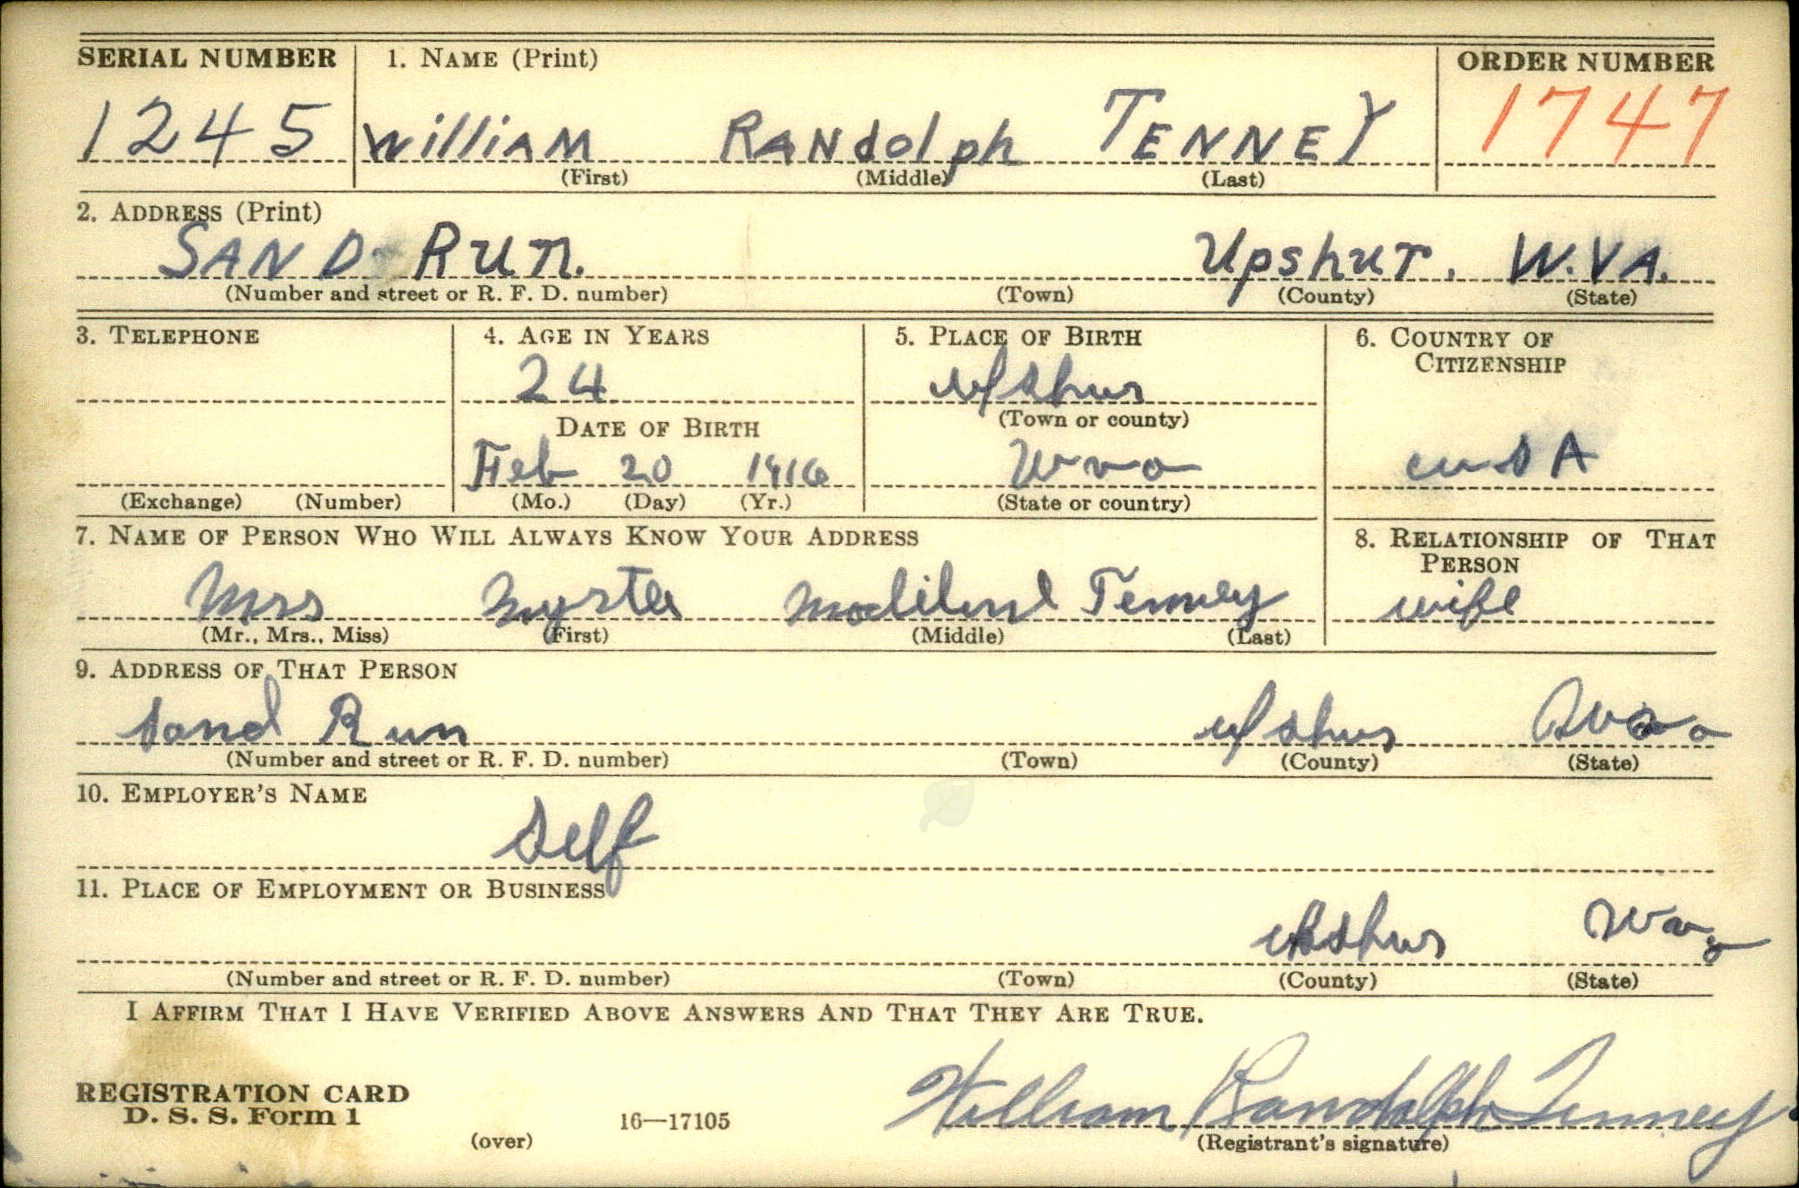 SERIAL NUMBER 1. NAME (Print) ORDER NUMBER
1245 William RANdolph TENNEY 1747
(First) (Middle) (Last)
2. ADDRESS (Print)
SAND RUN. Upshur, W.VA.
(Number and street or R. F. D. number) (Town) (County) (State)
3. TELEPHONE 4. AGE IN YEARS 5. PLACE OF BIRTH 6. COUNTRY OF CITIZENSHIP
24 Upshur
DATE OF BIRTH (Town or county)
Feb 20 1916 W va USA
(Exchange) (Number) (Mo.) (Day) (Yr.) (State or country)
7. NAME OF PERSON WHO WILL ALWAYS KNOW YOUR ADDRESS 8. RELATIONSHIP OF THAT PERSON
Mrs Tenney wife
(Mr., Mrs., Miss) (First) (Middle) (Last)
9. ADDRESS OF THAT PERSON
Sand Run Upshur Wva
(Number and street or R. F. D. number) (Town) (County) (State)
10. EMPLOYER'S NAME
Self
11. PLACE OF EMPLOYMENT OR BUSINESS
Upshur Wva
(Number and street or R. F. D. number) (Town) (County) (State)
I AFFIRM THAT I HAVE VERIFIED ABOVE ANSWERS AND THAT THEY ARE TRUE.
REGISTRATION CARD
D. S. S. Form 1 16—17105 William Randolph Tenney
(over) (Registrant's signature)